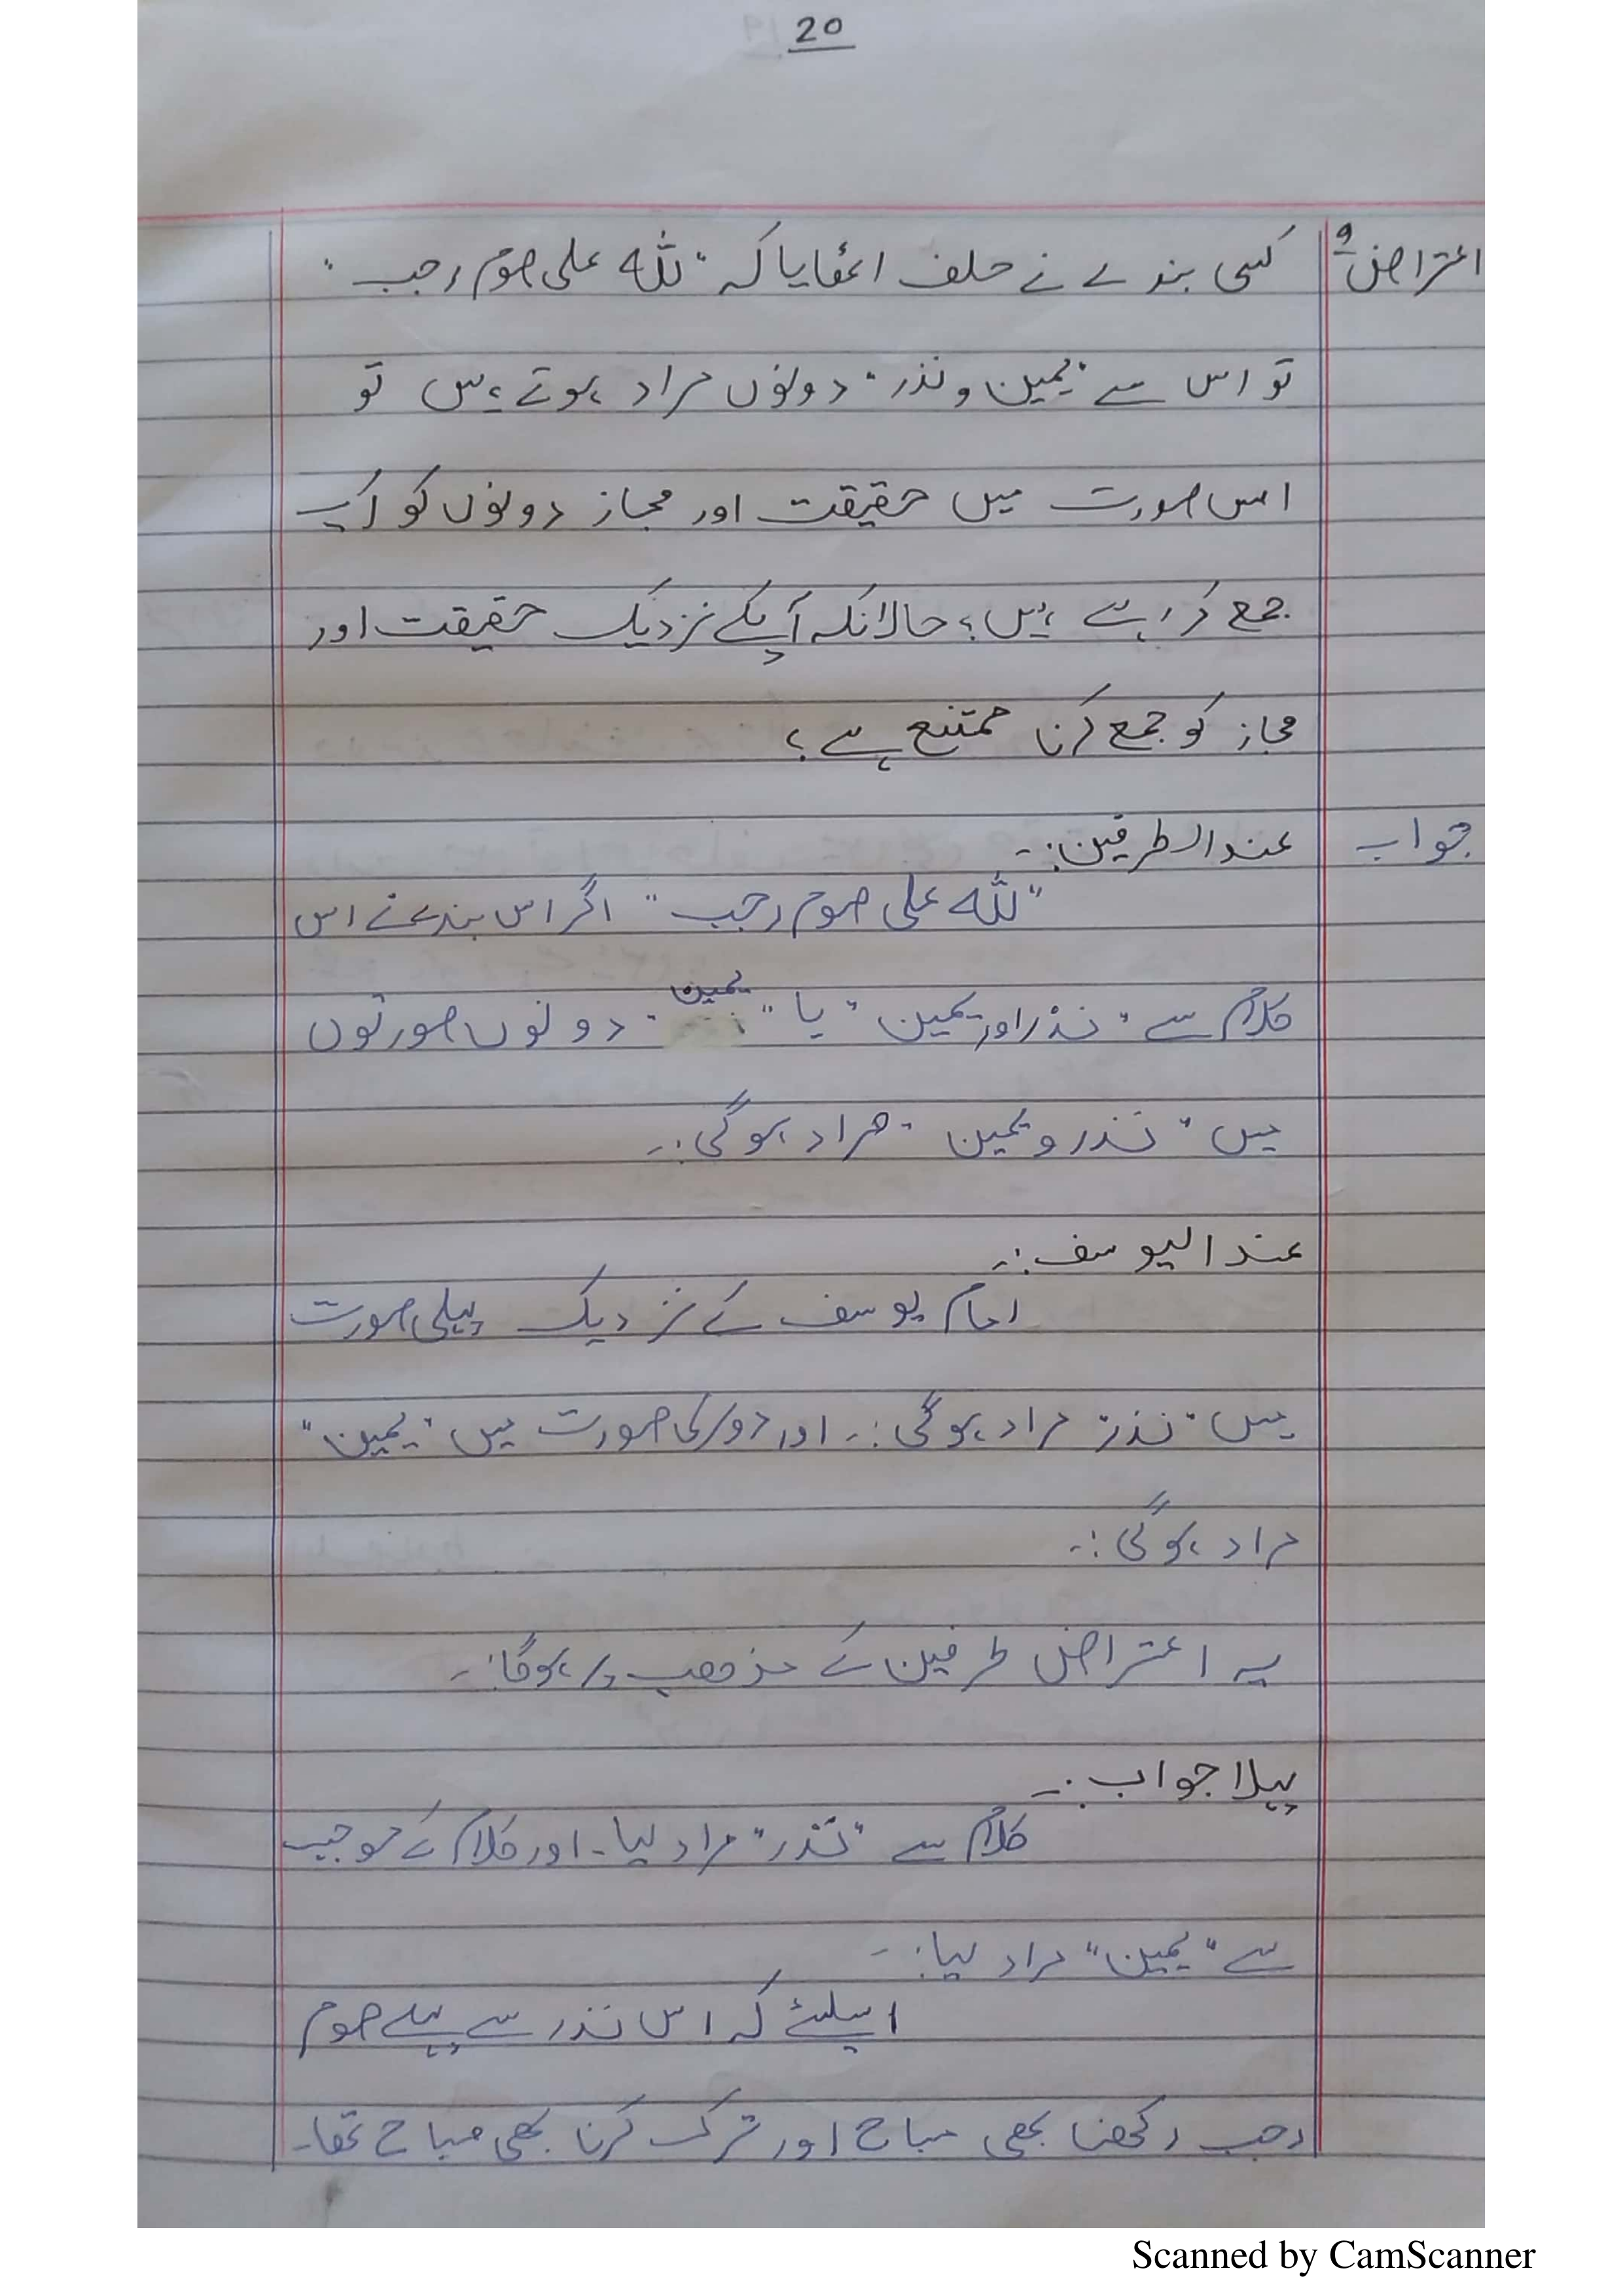 20
اعتراض ۹ کسی بندے نے حلف اٹھایا کہ "للّٰہ علی صوم رجب"
تو اس سے "یمین و نذر" دونوں مراد ہوتے ہیں تو
اس صورت میں حقیقت اور مجاز دونوں کو آپ
جمع کر رہے ہیں؛ حالانکہ آپکے نزدیک حقیقت اور
مجاز کو جمع کرنا ممتنع ہے؛
جواب عند الطرفین:۔
"للّٰہ علی صوم رجب" اگر اس بندے نے اس
کلام سے "نذر اور یمین" یا "یمین" دونوں صورتوں
میں "نذر و یمین" مراد ہوگی:۔
عند الیوسف:۔
امام یوسف کے نزدیک پہلی صورت
میں "نذر" مراد ہوگی:۔ اور دوسری صورت میں "یمین"
مراد ہوگی:۔
یہ اعتراض طرفین کے مذھب پر ہوگا:۔
پہلا جواب:۔
کلام سے "نذر" مراد لیا۔ اور کلام کے موجب
سے "یمین" مراد لیا:۔
اسلئے کہ اس نذر سے پہلے صوم
رجب رکھنا بھی مباح اور ترک کرنا بھی مباح تھا۔
Scanned by CamScanner